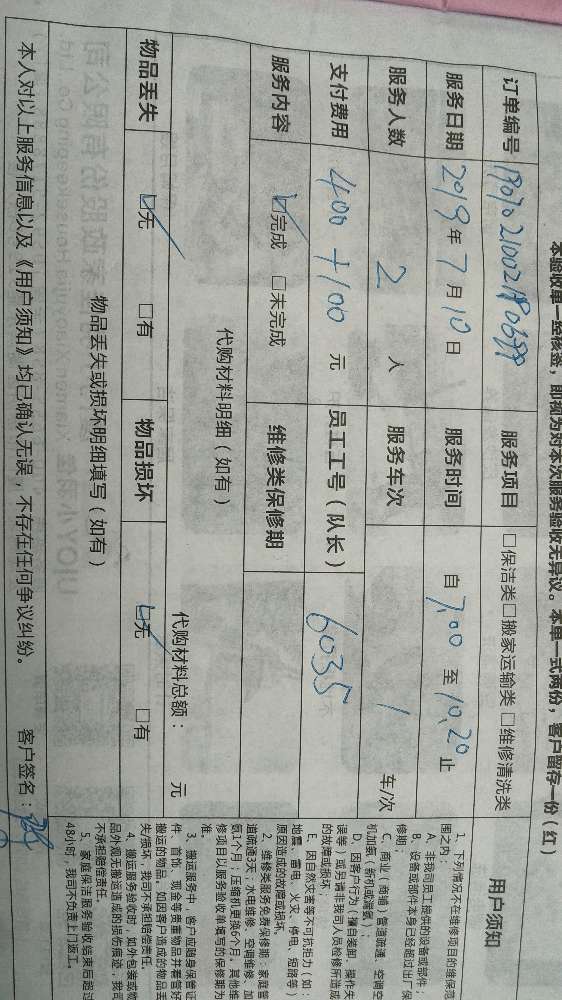 本验收单一经核签，即视为对本次服务验收无异议。本单一式两份，客户留存一份（红）
订单编号 服务项目 □保洁类□搬家运输类 □维修清洗类
服务日期 2019年7月10日 服务时间 自 7:00 至 10:20 止
服务人数 2 人 服务车次 1 车/次
支付费用 400+100 元 员工工号（队长） 6035
服务内容 ☑完成 □未完成 维修类保修期
代购材料明细（如有） 代购材料总额： 元
物品丢失 ☑无 □有 物品损坏 ☑无 □有
物品丢失或损坏明细填写（如有）
本人对以上服务信息以及《用户须知》均已确认无误，不存在任何争议纠纷。 客户签名：
用户须知
1、下列情况不在维修项目的维保范
围之内：
A、非我司员工提供的设备或部件；
B、设备或部件本身已经超过出厂保
修期；
C、商业（商铺）管道疏通、空调空
机加氨（新机或漏氨）；
D、因客户行为（擅自装卸、操作失
误等）或另请非我司人员检修所造成
的故障或损坏
E、因自然灾害等不可抗拒力（如：
地震、雷电、火灾、停电、短路等）
原因造成的故障或损坏。
2、维修类服务免费保修期：家庭管
道疏通3天；水电维修、空调维修、加
氨1个月；压缩机更换6个月，其他维
修项目以服务验收单填写的保修期为
准。
3、搬运服务中，客户应随身保管证
件、首饰、现金等贵重物品并看管好
搬运的物品。如因客户造成的物品丢
失/损坏，我司不承担赔偿责任。
4、搬运服务验收时，如外包装或物
品外观无搬运造成的损伤痕迹，我司
不承担赔偿责任。
5、家庭保洁服务验收结束后超过
48小时，我司不负责上门返工。